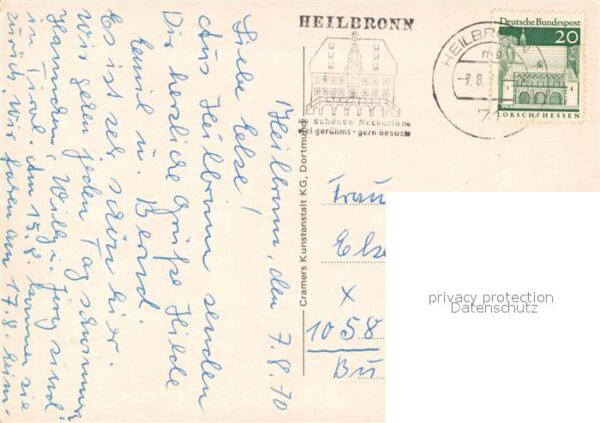 Heilbronn, den 7.8.70
Liebe Else!
Aus Heilbronn senden
Dir herzliche Grüße Hilde
Emil u. Bernd.
Es ist sehr schön hier.
Wir gehen jeden Tag schwimmen
Hannchen, Willy u. Jörg sind
in Tirol. Am 15.8. kommen sie
zurück. Wir fahren am 17.8. heim-
Cramers Kunstanstalt KG, Dortmund
HEILBRONN
schönen Neckartal
viel gerühmt - gern besucht
HEILBRONN
-7.8.
71
Deutsche Bundespost
20
LORSCH/HESSEN
Frau
Else
X
1058
privacy protection
Datenschutz